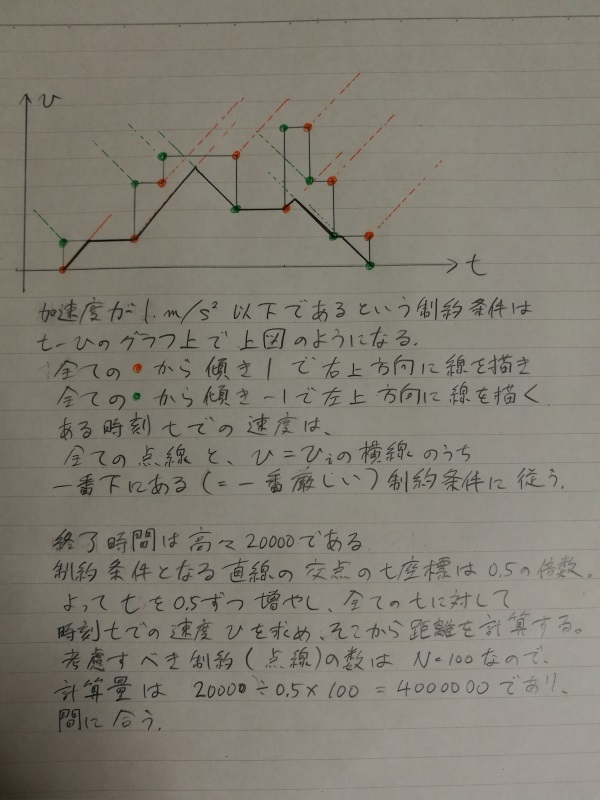 v
t
加速度が1.m/s² 以下であるという制約条件は
t-vのグラフ上で上図のようになる.
全ての●から傾き1で右上方向に線を描き
全ての●から傾き-1で左上方向に線を描く
ある時刻tでの速度は、
全ての点線と、v=viの横線のうち
一番下にある(=一番厳しい)制約条件に従う.
終了時間は高々20000である
制約条件となる直線の交点のt座標は0.5の倍数。
よってtを0.5ずつ増やし、全てのtに対して
時刻tでの速度vを求め、そこから距離を計算する。
考慮すべき制約(点線)の数はN=100なので、
計算量は 20000÷0.5×100=4000000であり、
間に合う.